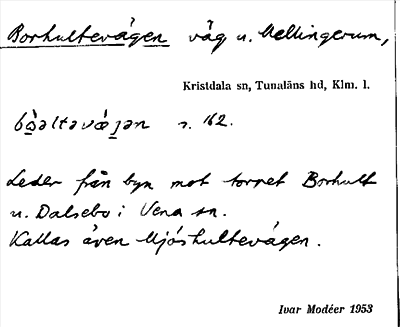 Borhultevägen väg u. Mellingerum,
Kristdala sn, Tunaläns hd, Klm. l.
s. 162.
Leder från byn mot torpet Borhult
u. Dalsebo i Vena sn.
Kallas även Mjöshultevägen.
Ivar Modéer 1953